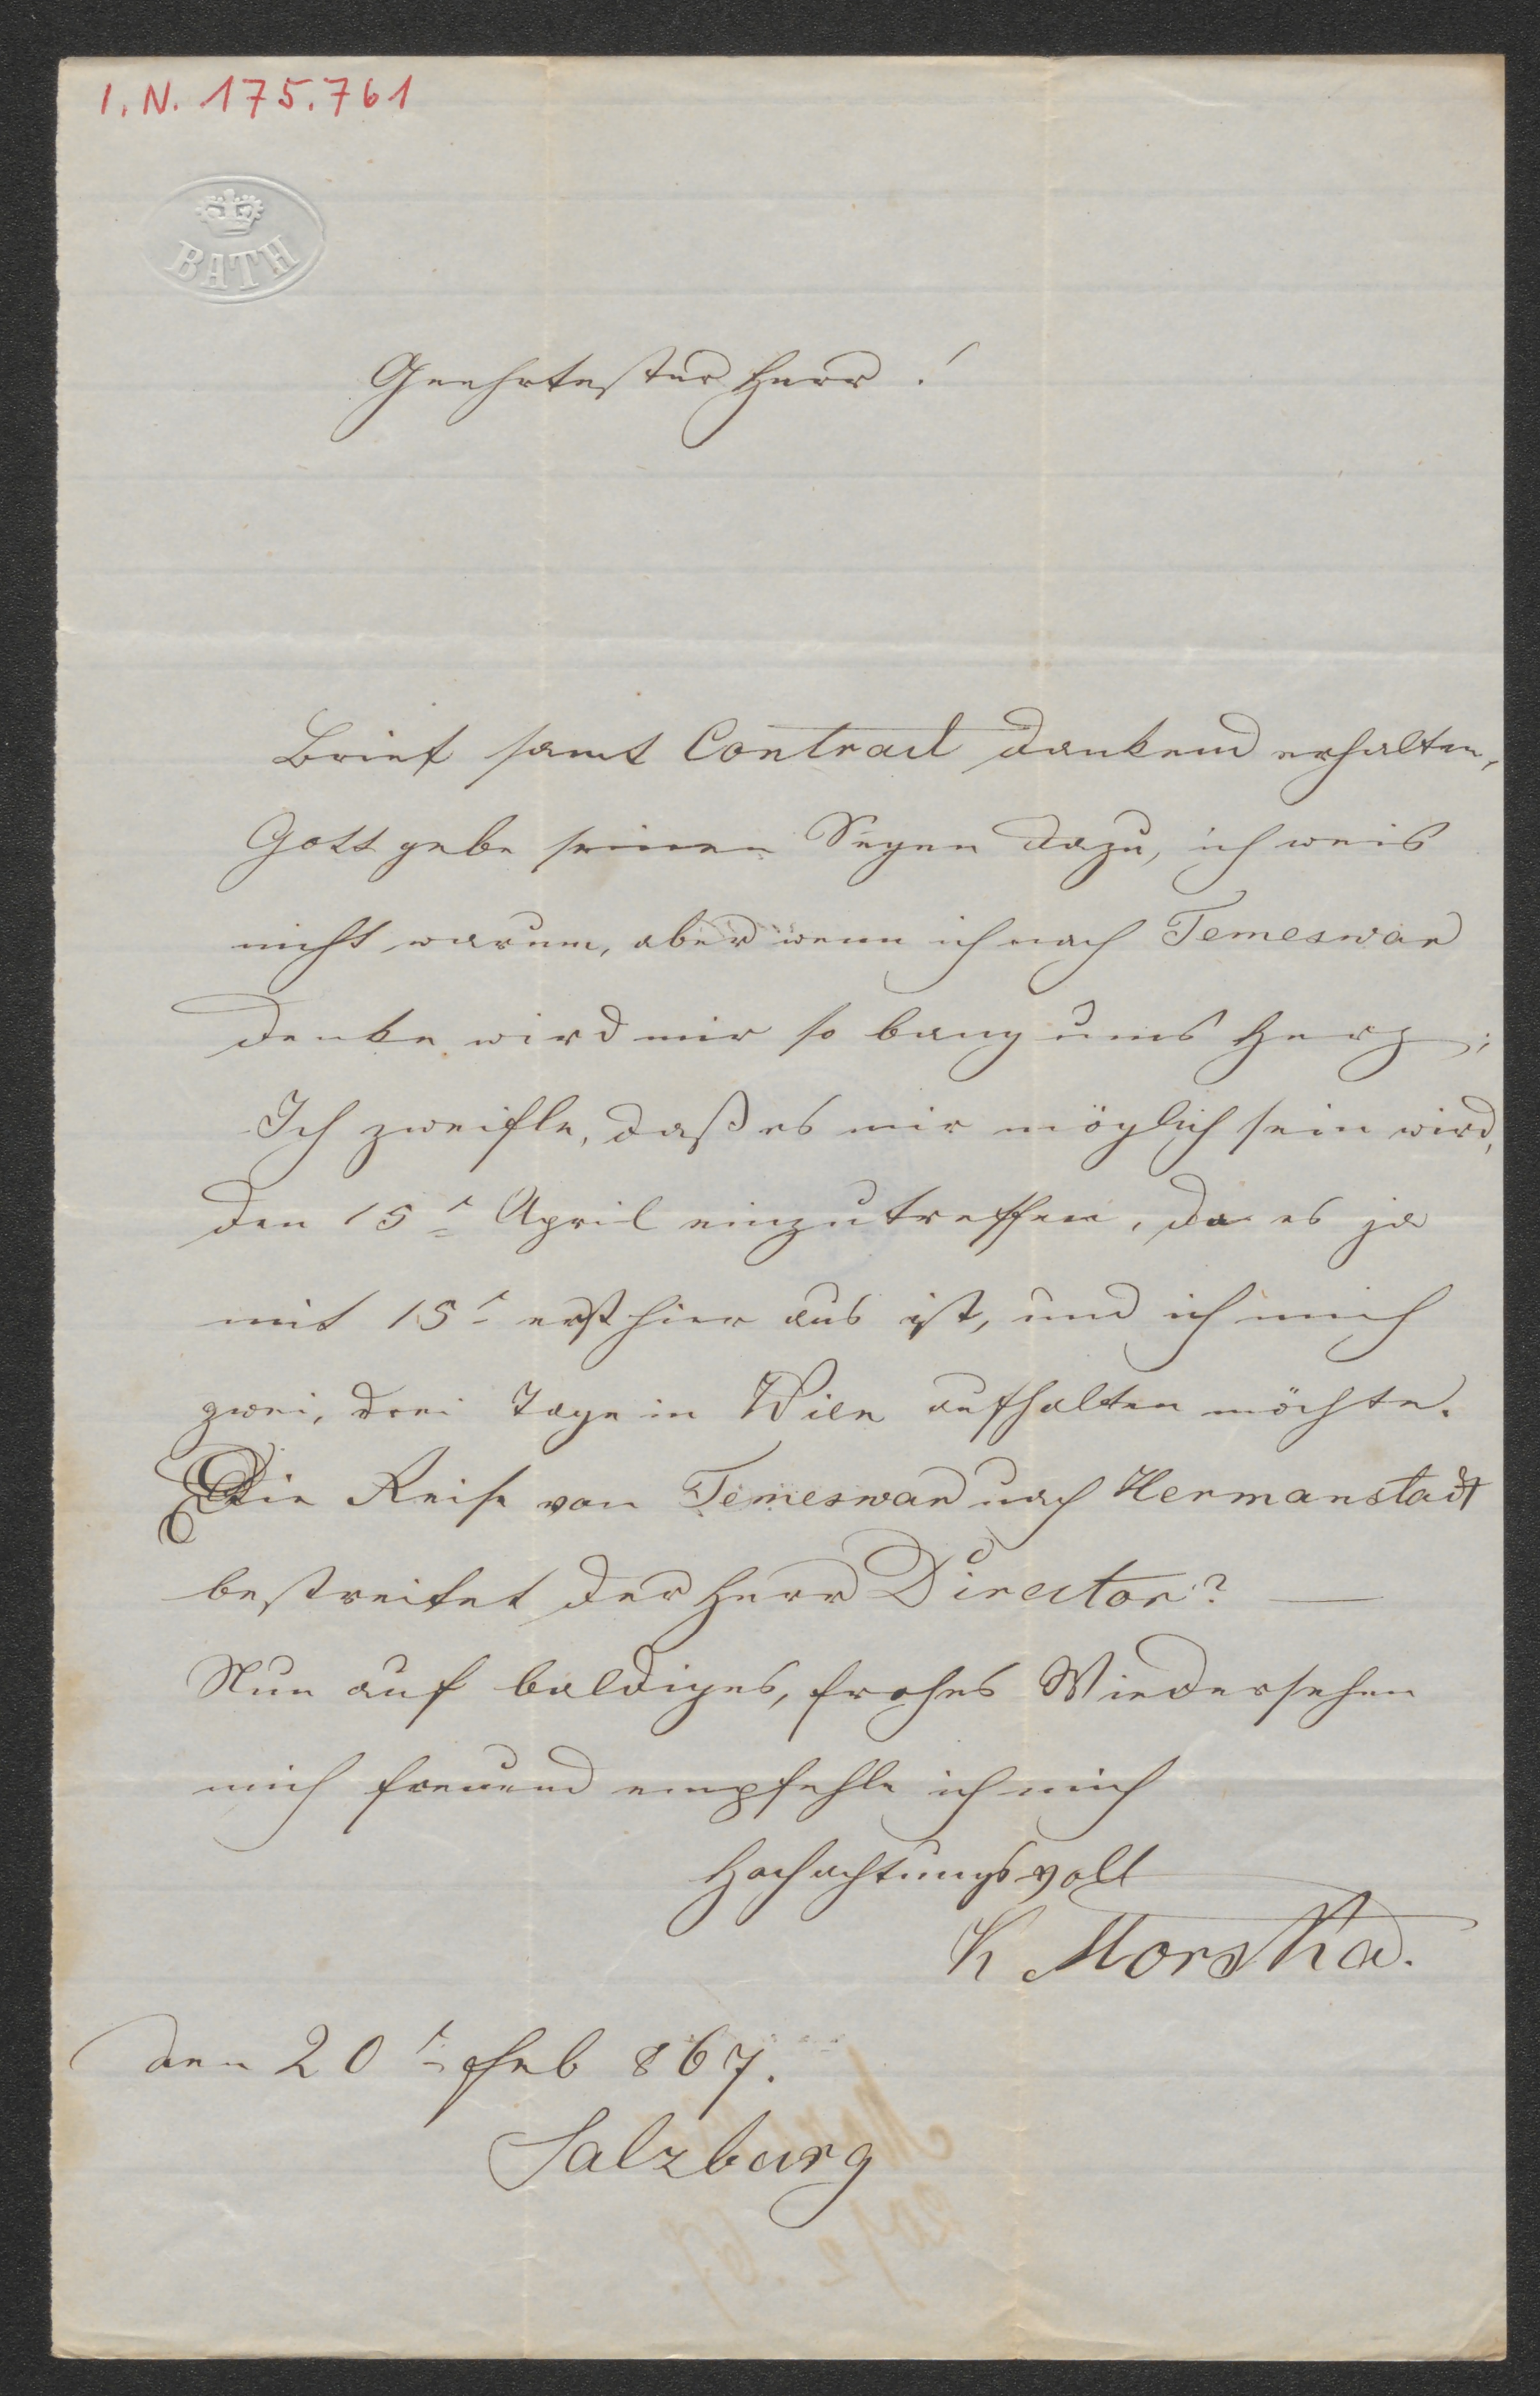 I. N. 175.761
BATH
Geehrtester Herr!
Brief samt Contract dankend erhalten,
Gott gebe seinen Segen dazu, ich weis
nicht warum, aber wenn ich nach Temeswar
denke wird mir so bang ums Herz;
Ich zweifle, daß es mir möglich sein wird,
den 15t April einzutreffen, da es ja
mit 15t erst hier aus ist, und ich mich
zwei, drei Tage in Wien aufhalten möchte.
Die Reise von Temeswar nach Hermanstadt
bestreitet der Herr Director? —
Nun auf baldiges, frohes Wiedersehen
mich freuend empfehle ich mich
Hochachtungsvoll
K Morska.
den 20t Feb 867.
Salzburg